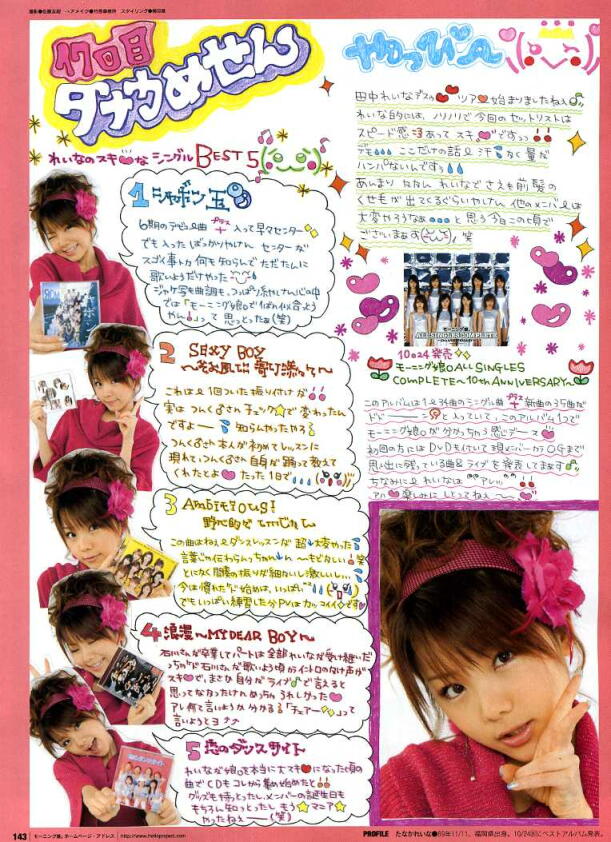 17回目
タナカめせん
れいなのスキ♥な シングル BEST5
1 シャボン玉
6期のデビュー曲プラス入って早々センター
でも入ったばっかりやけん センターが
スゴイ事トカ何も知らんで ただたんに
歌いようだけやった
ジャケ写も曲調も、つっぱり系やけん心の中
では「モーニング娘。でこれは似合うよう
やん!」って思っとったぁ(笑)
2 SEXY BOY
〜そよ風に寄り添って〜
これは1回ついた振り付けが!!
実はつんく♂さんチェック★で変わったん
ですよー 知らんやったやろ
つんく♂さん本人が初めてレッスンに
現れてつんく♂さん自身が踊って教えて
くれたとよ♥ たった1日で!!
3 Ambitious!
野心的でいいじゃん
この曲はねぇダンスレッスンが超大変やった
言葉じゃ伝わらんっちゃん ん〜もどかしい 笑
とにかく間奏の振りが細かいし激しいし…
今は慣れたけど始めは、いっぱい
でもいっぱい練習した分PVはカッコイイですす♥
4 浪漫〜MY DEAR BOY〜
石川さんが卒業してパートは全部れいなが受け継いだ
っちゃけど石川さんが歌いよう頃からイントロのなげ声が
スキ♥で、まさか自分がライブ♪で言えると
思ってなかったけんめっちゃうれしかった
アレ何て言いようか分かる?「チェアー」って
言いようとヨナ
5 恋のダンスサイト
れいなが娘。を本当に大スキ♥になった頃の
曲でCDもコレから集め始めたと!!
グッズも持っとったし、メンバーの誕生日も
もちろん知っとったし もう☆マニア☆
やったねぇー(笑)
やっぴー
田中れいなデスっ ツアー始まりましたねぇ♪
れいな的には、ノリノリで今回のセットリストは
スピード感あって スキ♥ですぅっ!!
デモ… ここだけの話 汗 なく量が
ハンパないんですぅ!!
あんまり たたん れいなでさえも前髪の
くせもが出てくるぐらいやけん 他のメンバーは
大変やろうなぁ…と思う今日この頃で
ございまぁす 笑
ALL SINGLES COMPLETE
10◎24 発売
モーニング娘。ALL SINGLES
COMPLETE〜10th ANNIVERSARY〜
このアルバムは1〜34曲のシングル曲プラス新曲の35曲が
ドドーーーンと入っていて、このアルバム1つで
モーニング娘。が分かっちゃう感じデース♥
初回の方にはDVDも付いてて現メンバーからOGまで
思い出に残っている曲&ライブを発表してまぁす♪
ちなみにれいなは"アレ"!!
アハ♥楽しみにしとってねぇ〜
143 モーニング娘。ホームページ・アドレス http://www.helloproject.com
PROFILE たなかれいな●89年11/11、福岡県出身。10/24にベストアルバム発表。